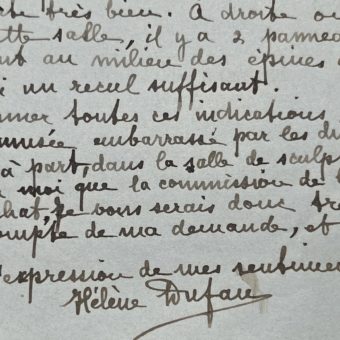 te très bien. A droite ou
tte salle, il y a 2 pannea
nt au milieu des épines
i un recul suffisant.
nner toutes ces indications
musée, embarrassé par les di
à part, dans la salle de sculp
moi que la commission de
hat, je vous serais donc tr
ompte de ma demande, et
'expression de mes sentime
Hélène Dufau